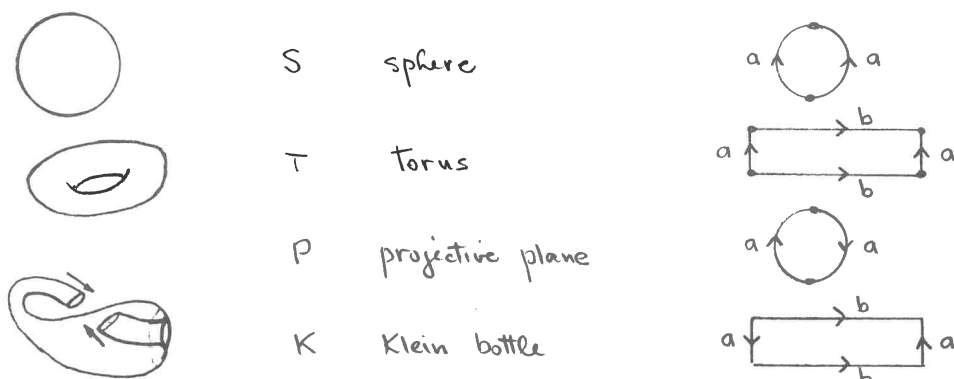 S sphere a a
b
T torus a a
b
P projective plane a a
b
K Klein bottle a a
b